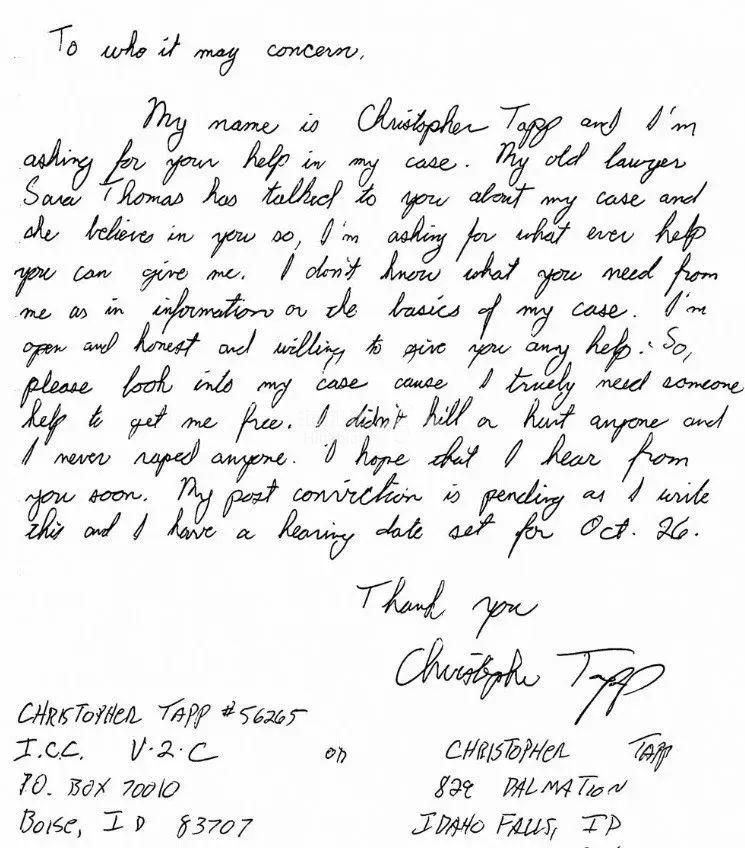 To who it may concern,
My name is Christopher Tapp and I'm
asking for your help in my case. My old lawyer
Sara Thomas has talked to you about my case and
she believes in you so, I'm asking for what ever help
you can give me. I don't know what you need from
me as in information or the basics of my case. I'm
open and honest and willing to give you any help. So,
please look into my case cause I truely need someone
help to get me free. I didn't kill or hurt anyone and
I never raped anyone. I hope that I hear from
you soon. My post conviction is pending as I write
this and I have a hearing date set for Oct. 26.
Thank you
Christopher Tapp
CHRISTOPHER TAPP #56265
I.C.C. V-2-C
P.O. BOX 70010
BOISE, ID 83707
on
CHRISTOPHER TAPP
829 DALMATION
IDAHO FALLS, ID